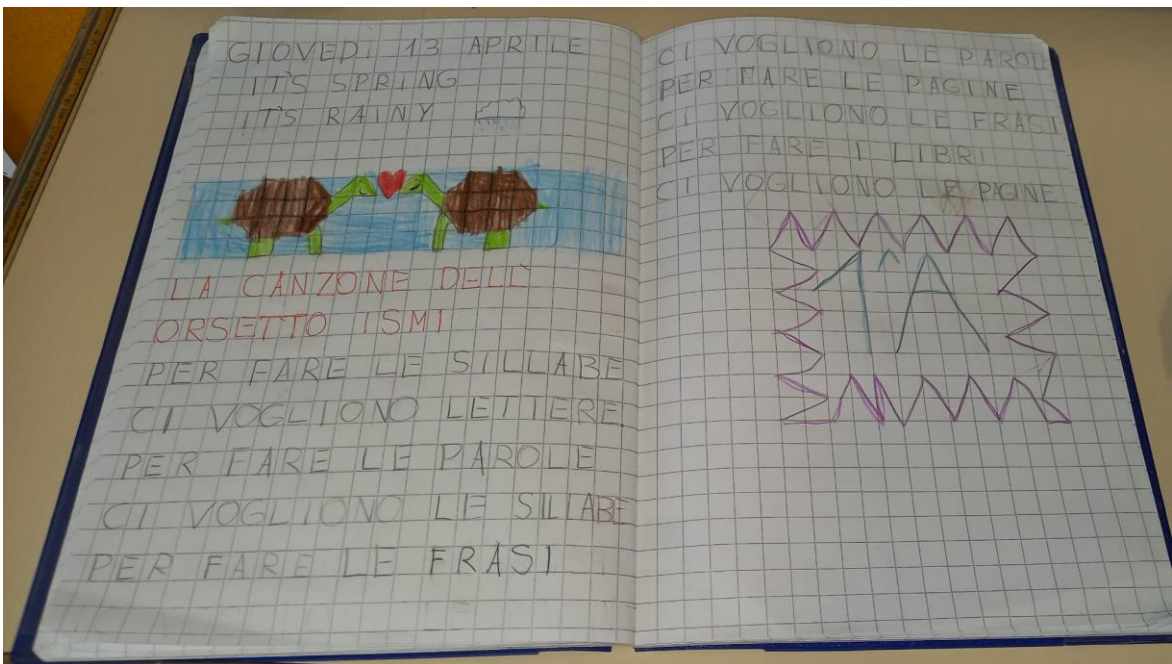 GIOVEDÌ 13 APRILE
IT'S SPRING
IT'S RAINY
LA CANZONE DELL'
ORSETTO ISMI
PER FARE LE SILLABE
CI VOGLIONO LETTERE
PER FARE LE PAROLE
CI VOGLIONO LE SILLABE
PER FARE LE FRASI
CI VOGLIONO LE PAROLE
PER FARE LE PAGINE
CI VOGLIONO LE FRASI
PER FARE I LIBRI
CI VOGLIONO LE PAGINE
1ªA